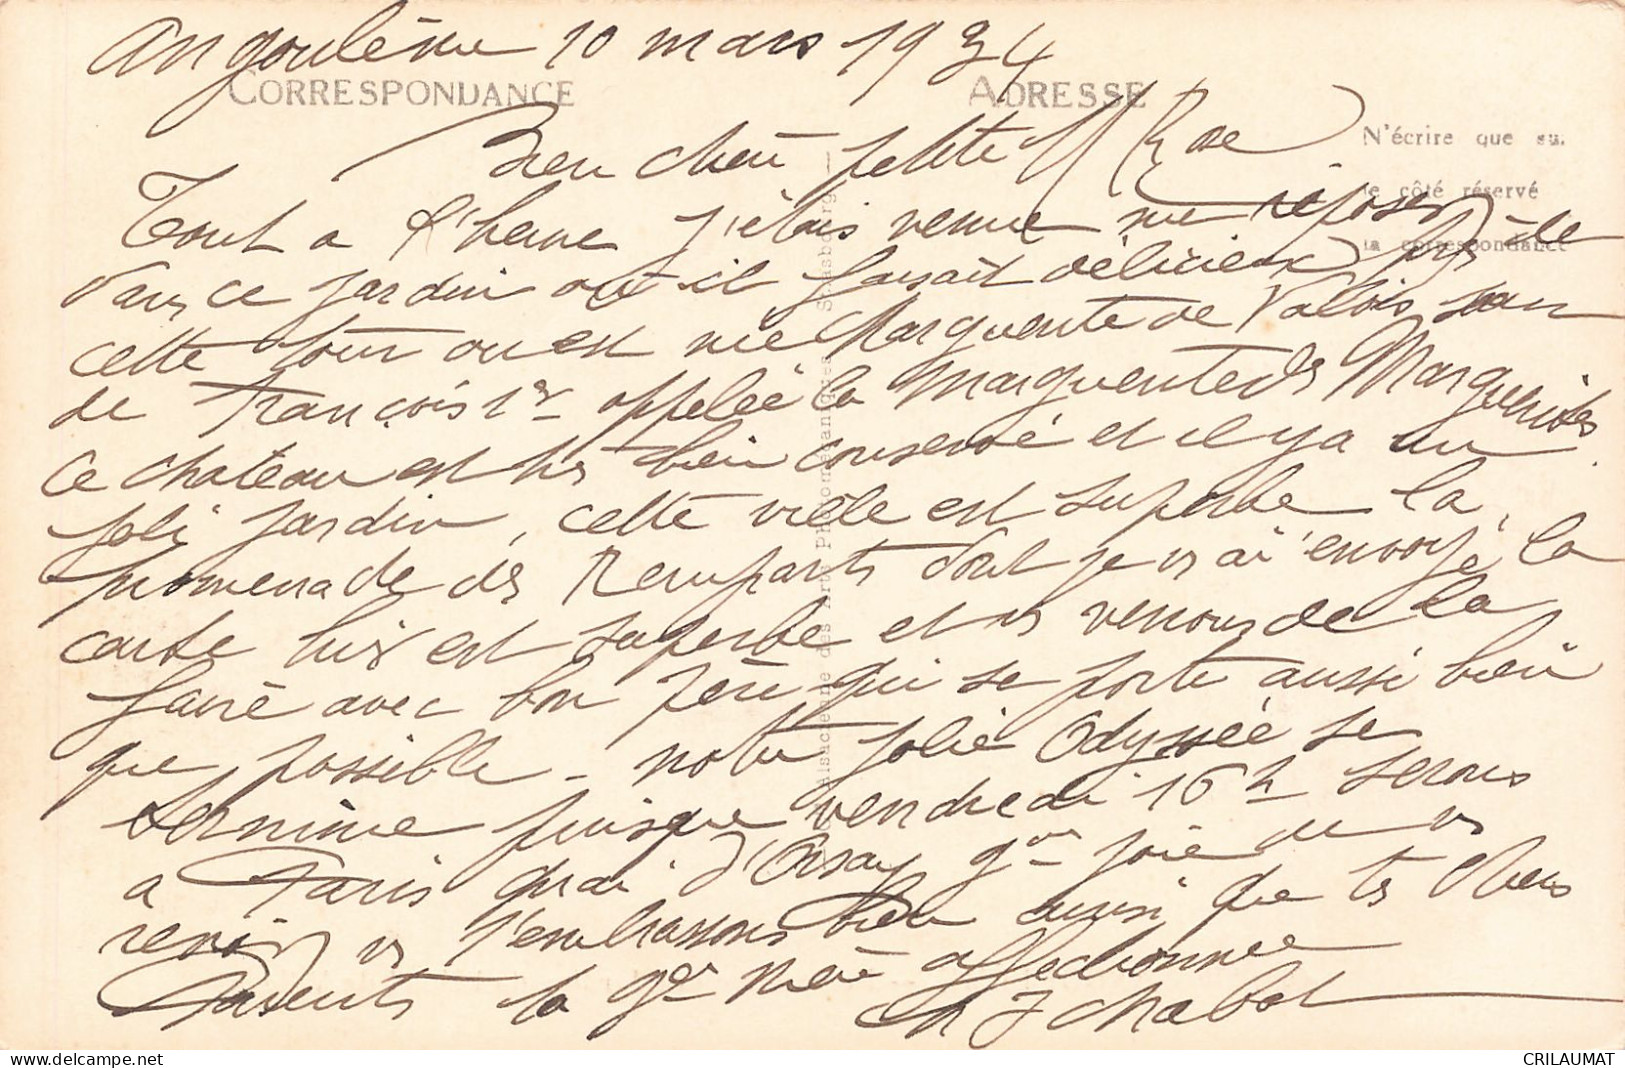 Angoulême 10 mars 1934
CORRESPONDANCE
ADRESSE
N'écrire que su.
le côté réservé
la correspondance
Bien chère petite M Rose
Tout a l'heure j'étais venue me reposer
dans ce jardin où il faisait délicieux près de
cette tour ou est née Marguerite de Valois sœur
de François 1er appelée la Marguerite des Marguerites
Ce chateau est très bien conservé et il y a un
joli jardin, cette ville est superbe la
promenade des Remparts dont je vs ai envoyé la
carte hier est superbe et ns venons de la
faire avec bon Père qui se porte aussi bien
que possible - notre jolie Odyssée se
termine puisque vendredi 16 h serons
a Paris quai d'Orsay gde joie de vs
revoir ns t'embrassons bien ainsi que tes chers
Parents ta gde Mère affectionnée
J Chabot
Alsacienne des Arts Photomécaniques Strasbourg
CRILAUMAT
delcampe.net